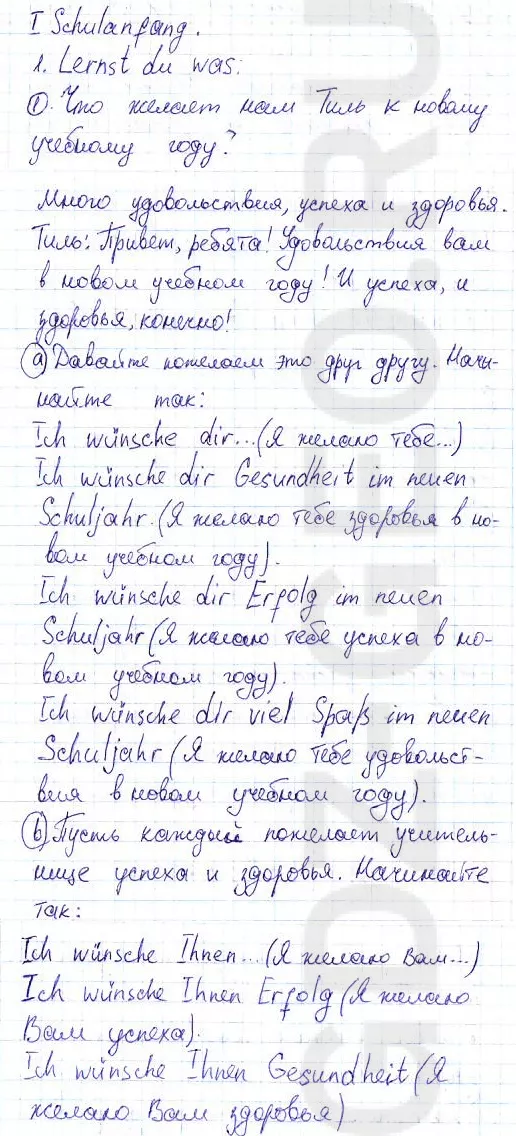 I Schulanfang.
1. Lernst du was:
①. Что желает нам Тиль к новому
учебному году?
Много удовольствия, успеха и здоровья.
Тиль: Привет, ребята! Удовольствия вам
в новом учебном году! И успеха, и
здоровья, конечно!
ⓐ Давайте пожелаем это друг другу. Начи-
найте так:
Ich wünsche dir... (Я желаю тебе...)
Ich wünsche dir Gesundheit im neuen
Schuljahr. (Я желаю тебе здоровья в но-
вом учебном году).
Ich wünsche dir Erfolg im neuen
Schuljahr (Я желаю тебе успеха в но-
вом учебном году).
Ich wünsche dir viel Spaß im neuen
Schuljahr (Я желаю тебе удовольст-
вия в новом учебном году).
ⓑ Пусть каждый пожелает учитель-
нице успеха и здоровья. Начинайте
так:
Ich wünsche Ihnen... (Я желаю Вам...)
Ich wünsche Ihnen Erfolg (Я желаю
Вам успеха).
Ich wünsche Ihnen Gesundheit (Я
желаю Вам здоровья)
GDZ-GEO.RU